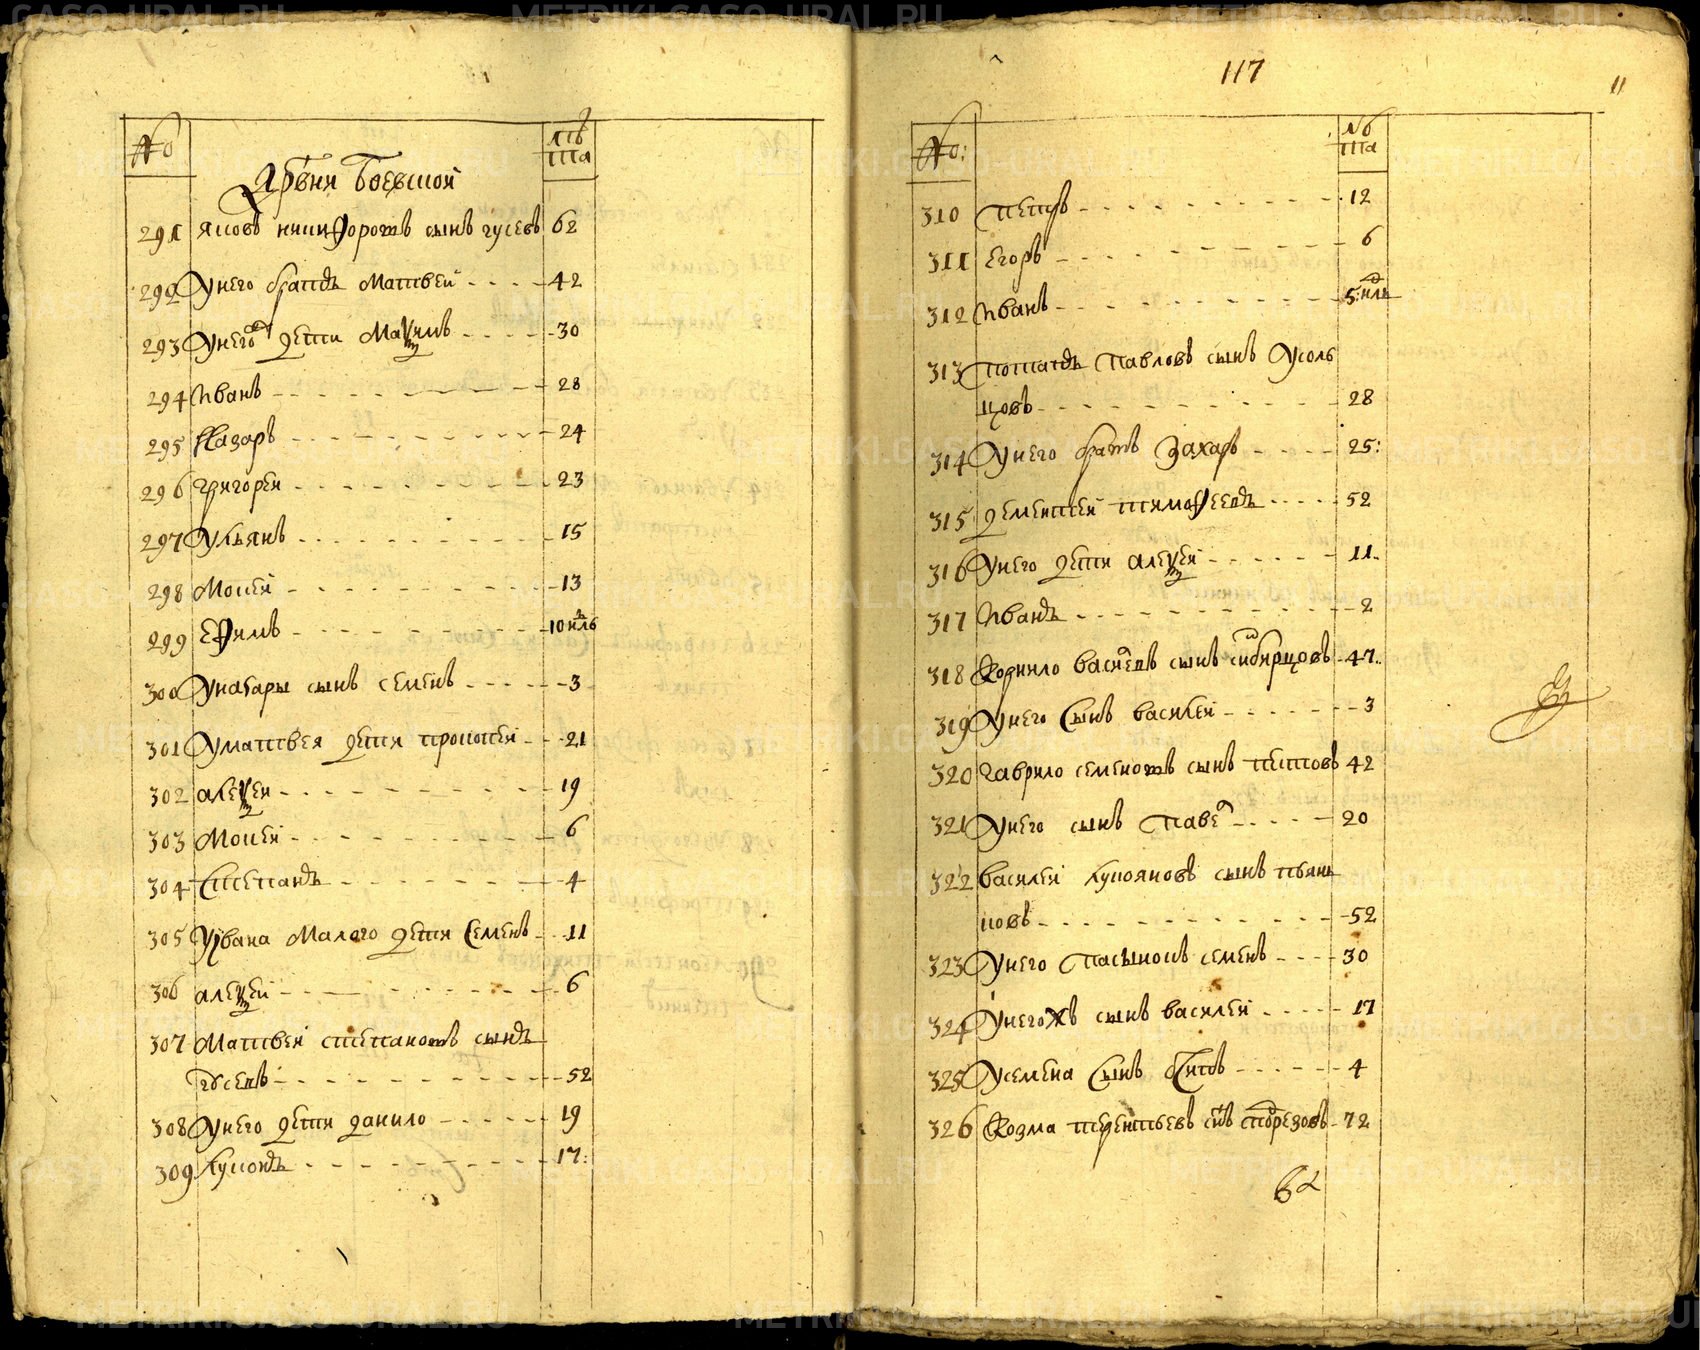 №
лѣта
Дрвни Боевской
291 яковъ никифоровъ сынъ гусевъ 62
292 Унего братъ Матвеи 42
293 Унего дети Маѯимъ 30
294 Иванъ 28
295 Назаръ 24
296 григореи 23
297 Ульянъ 15
298 Мокеи 13
299 Ефимъ 10 нлѣ
300 Уназары сынъ семенъ 3
301 Уматвея дети прокопеи 21
302 алеѯеи 19
303 Мокеи 6
304 Степанъ 4
305 Уївана Малого дети Семенъ 11
306 алеѯеи 6
307 Матвеи степановъ сынъ
гусевъ 52
308 Унего дети данило 19
309 купонъ 17
117
11
№:
лѣта
310 Петръ 12
311 Егоръ 6
312 Иванъ 5: нлѣ
313 потапъ Павловъ сынъ Усоль
цовъ 28
314 Унего братъ Захаръ 25:
315 дементеи тимофеевъ 52
316 Унего дети алеѯеи 11
317 Иванъ 2
318 Корнило васиевъ сынъ сибирцовъ 47
319 Унего Сынъ василеи 3
320 гаврило семеновъ сынъ титовъ 42
321 Унего сынъ Паве 20
322 василеи купояновъ сынъ пьян
ковъ 52
323 Унего Пасынокъ семенъ 30
324 Унегожъ сынъ василеи 17
325 Усемена Сынъ осипъ 4
326 Козма терентьевъ снъ порезовъ 72